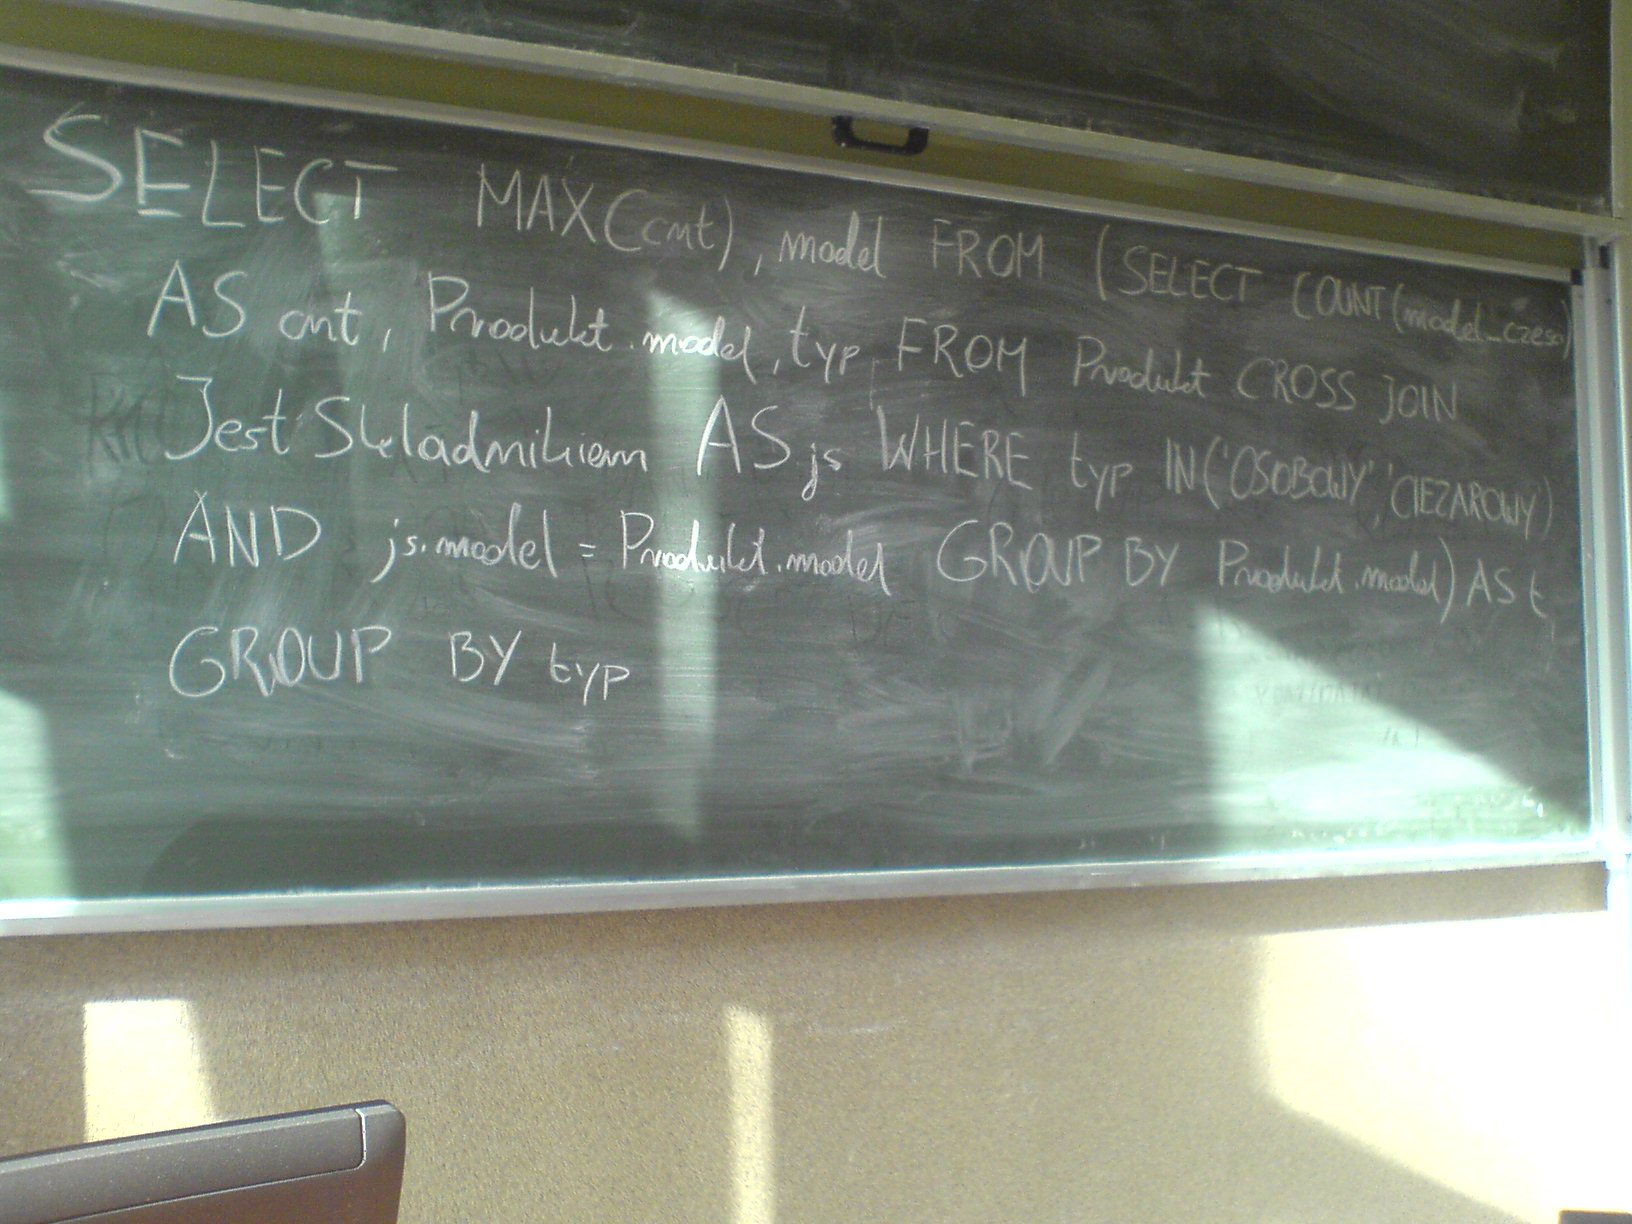 SELECT MAX(cnt), model FROM (SELECT COUNT(model_czesc)
AS cnt, Produkt.model, typ FROM Produkt CROSS JOIN
JestSkladnikiem AS js WHERE typ IN('OSOBOWY','CIEZAROWY')
AND js.model = Produkt.model GROUP BY Produkt.model) AS t
GROUP BY typ